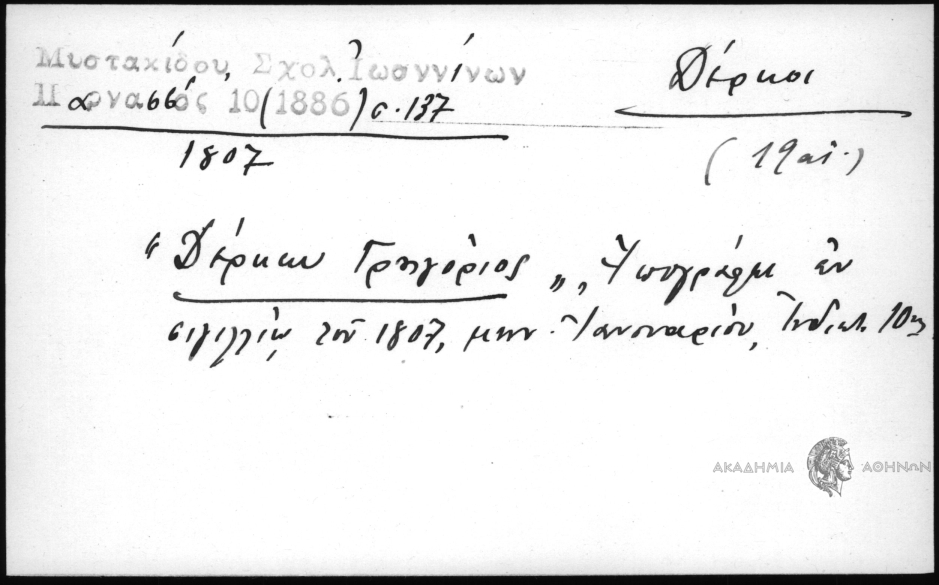 Μυστακίδου, Σχολ. Ἰωαννίνων
Παρνασσός 10(1886) σ. 137
Δέρκοι
1807
(19 αἰ.)
"Δέρκων Γρηγόριος", Ὑπογράφει ἐν
σιγιλλίῳ τοῦ 1807, μην. Ἰαννουαρίου, Ἰνδικτ. 10ης
ΑΚΑΔΗΜΙΑ ΑΘΗΝΩΝ